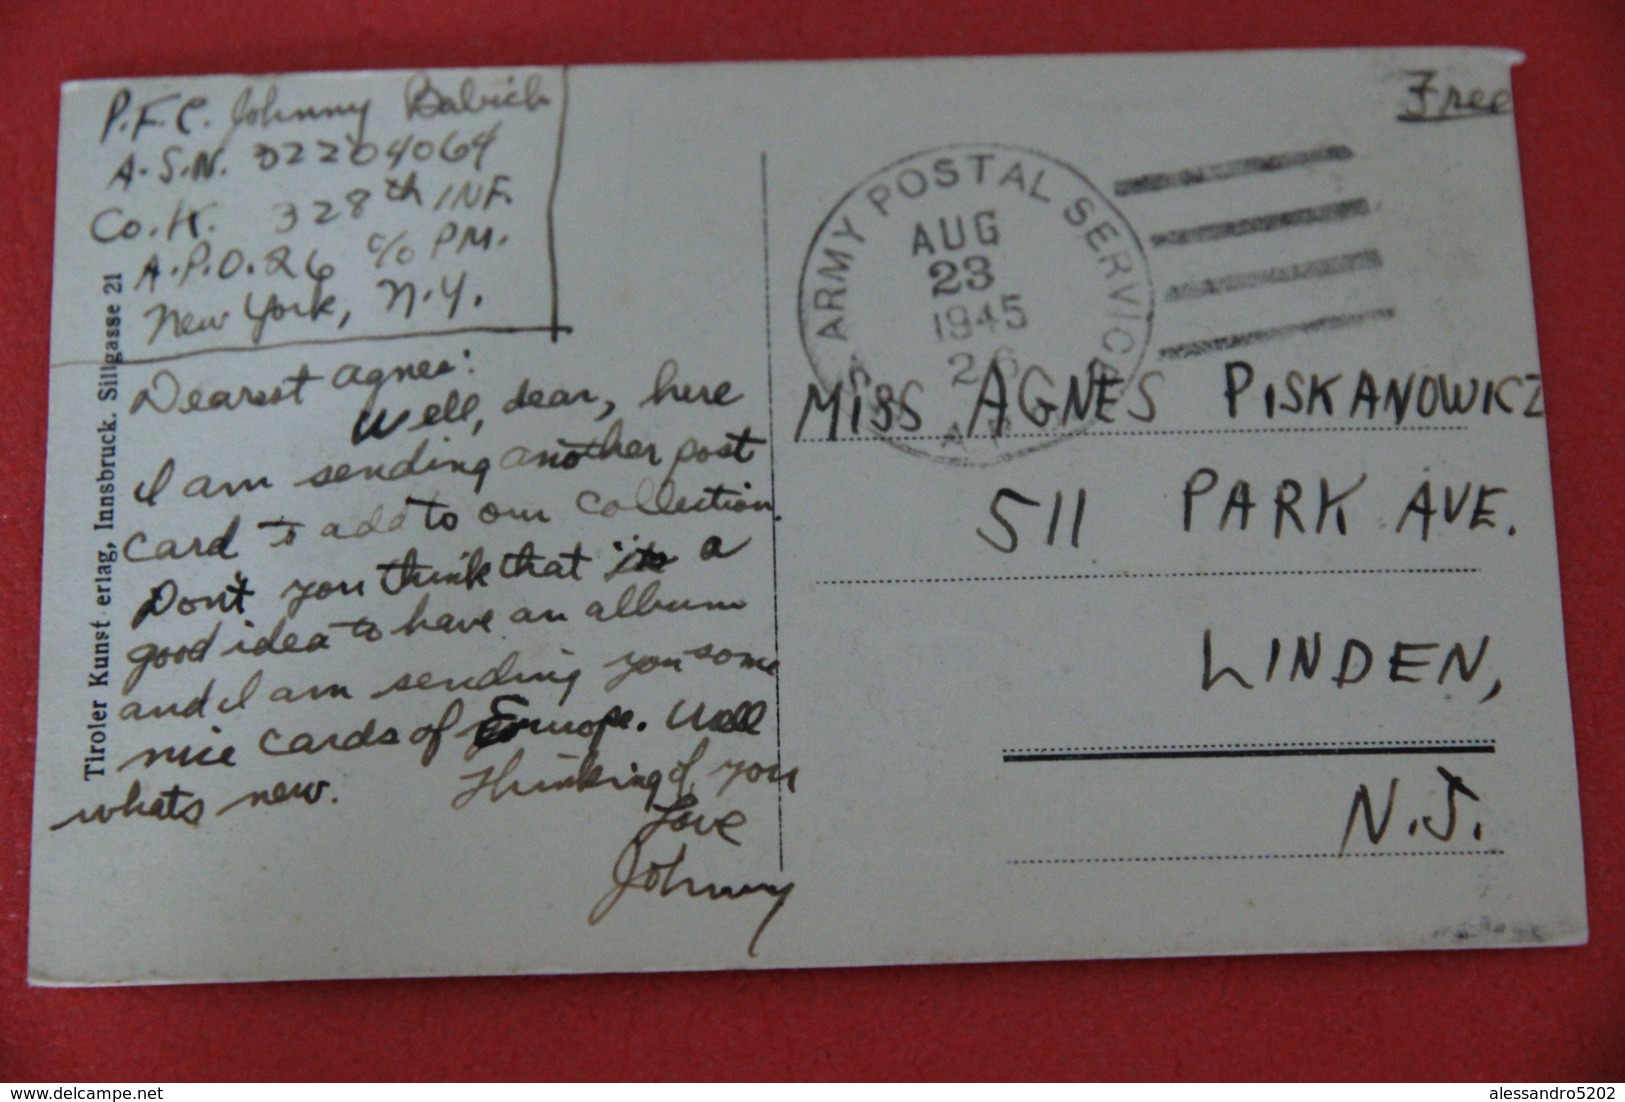 P.F.C. Johnny Babich
A.S.N. 32204064
Co. K. 328th INF.
A.P.O. 26 c/o PM.
New York, N.Y.
Dearest Agnes:
Well, dear, here
I am sending another post
card to add to our collection.
Don't you think that its a
good idea to have an album
and I am sending you some
nice cards of Europe. Well
whats new. Thinking of you
Love
Johnny
Tiroler Kunst erlag, Innsbruck. Sillgasse 21
Free
ARMY POSTAL SERVICE
AUG
23
1945
26
MISS AGNES PISKANOWICZ
511 PARK AVE.
LINDEN,
N.J.
delcampe.net
alessandro5202